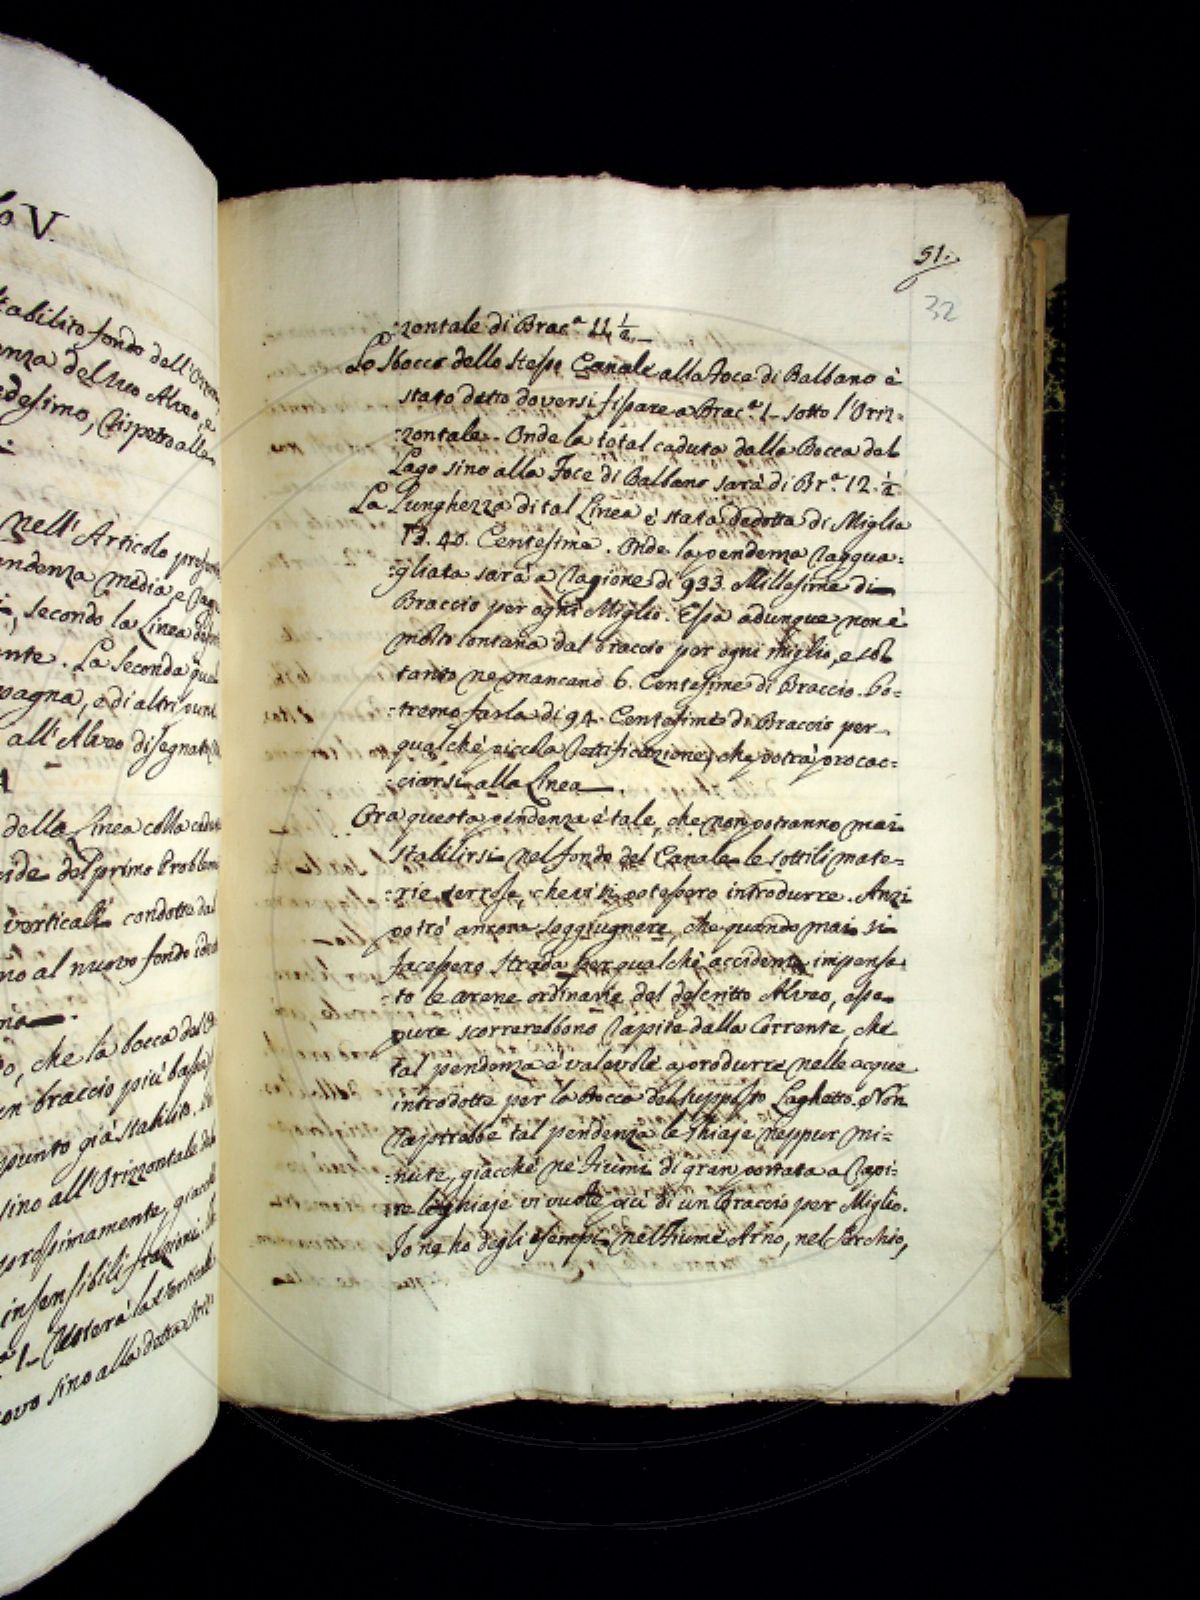 lo V.
stabilito fondo dell'Orizon
enza del suo Alveo, e
edesimo, rispetto alle
nell'Articolo prese
endenza media e rag
secondo la Linea
ente. La seconda qua
pagna, e di altri punt
all'Alveo disegnato
della Linea colla cadu
cide del primo Problem
verticali condotte dal
no al nuovo fondo
che la bocca del
un braccio più bassa
punto già stabilito.
sino all'Orizzontale
prossimamente, giacchè
insensibili frazioni.
1_ Resterà la Vertical
ovo sino alla detta Oriz
51.
32
:zontale di Brac.ª 11 ½_
Lo Sbocco dello stesso Canale alla Foce di Balbano è
stato detto doversi fissare a Brac.ª 1_ sotto l'Oriz=
:zontale. Onde la total caduta dalla Bocca del
Lago sino alla Foce di Balbano sarà di Br.ª 12. ½
La Lunghezza di tal Linea è stata dedotta di Miglia
13. 40. Centesime. Onde la pendenza ragqua=
:gliata sarà a ragione di 933. Millesime di
Braccio per ogni Miglio. Essa adunque non è
molto lontana dal braccio per ogni miglio, e sol
tanto ne mancano 6. Centesime di Braccio. Po=
:tremo farla di 94. Centesime di Braccio per
qualche piccola rettificazione, che potrà procac=
:ciarsi alla Linea.
Ora questa pendenza è tale, che non potranno mai
stabilirsi nel fondo del Canale le sottili mate=
:rie terrose, che vi si potessero introdurre. Anzi
potrò ancora soggiugnere, che quando mai si
facessero strada per qualche accidente impensa
:to le arene ordinarie del descritto Alveo, esse
pure scorrerebbono rapite dalla Corrente, che
tal pendenza è valevole a produrre nelle acque
introdotte per la Bocca del supposto Laghetto. Non
rapirebbe tal pendenza le Ghiaje neppur mi=
:nute, giacchè ne' Fiumi di gran portata a rapi=
:re le ghiaje vi vuole più di un Braccio per Miglio.
Io ne ho degli esempi nel Fiume Arno, nel Serchio,